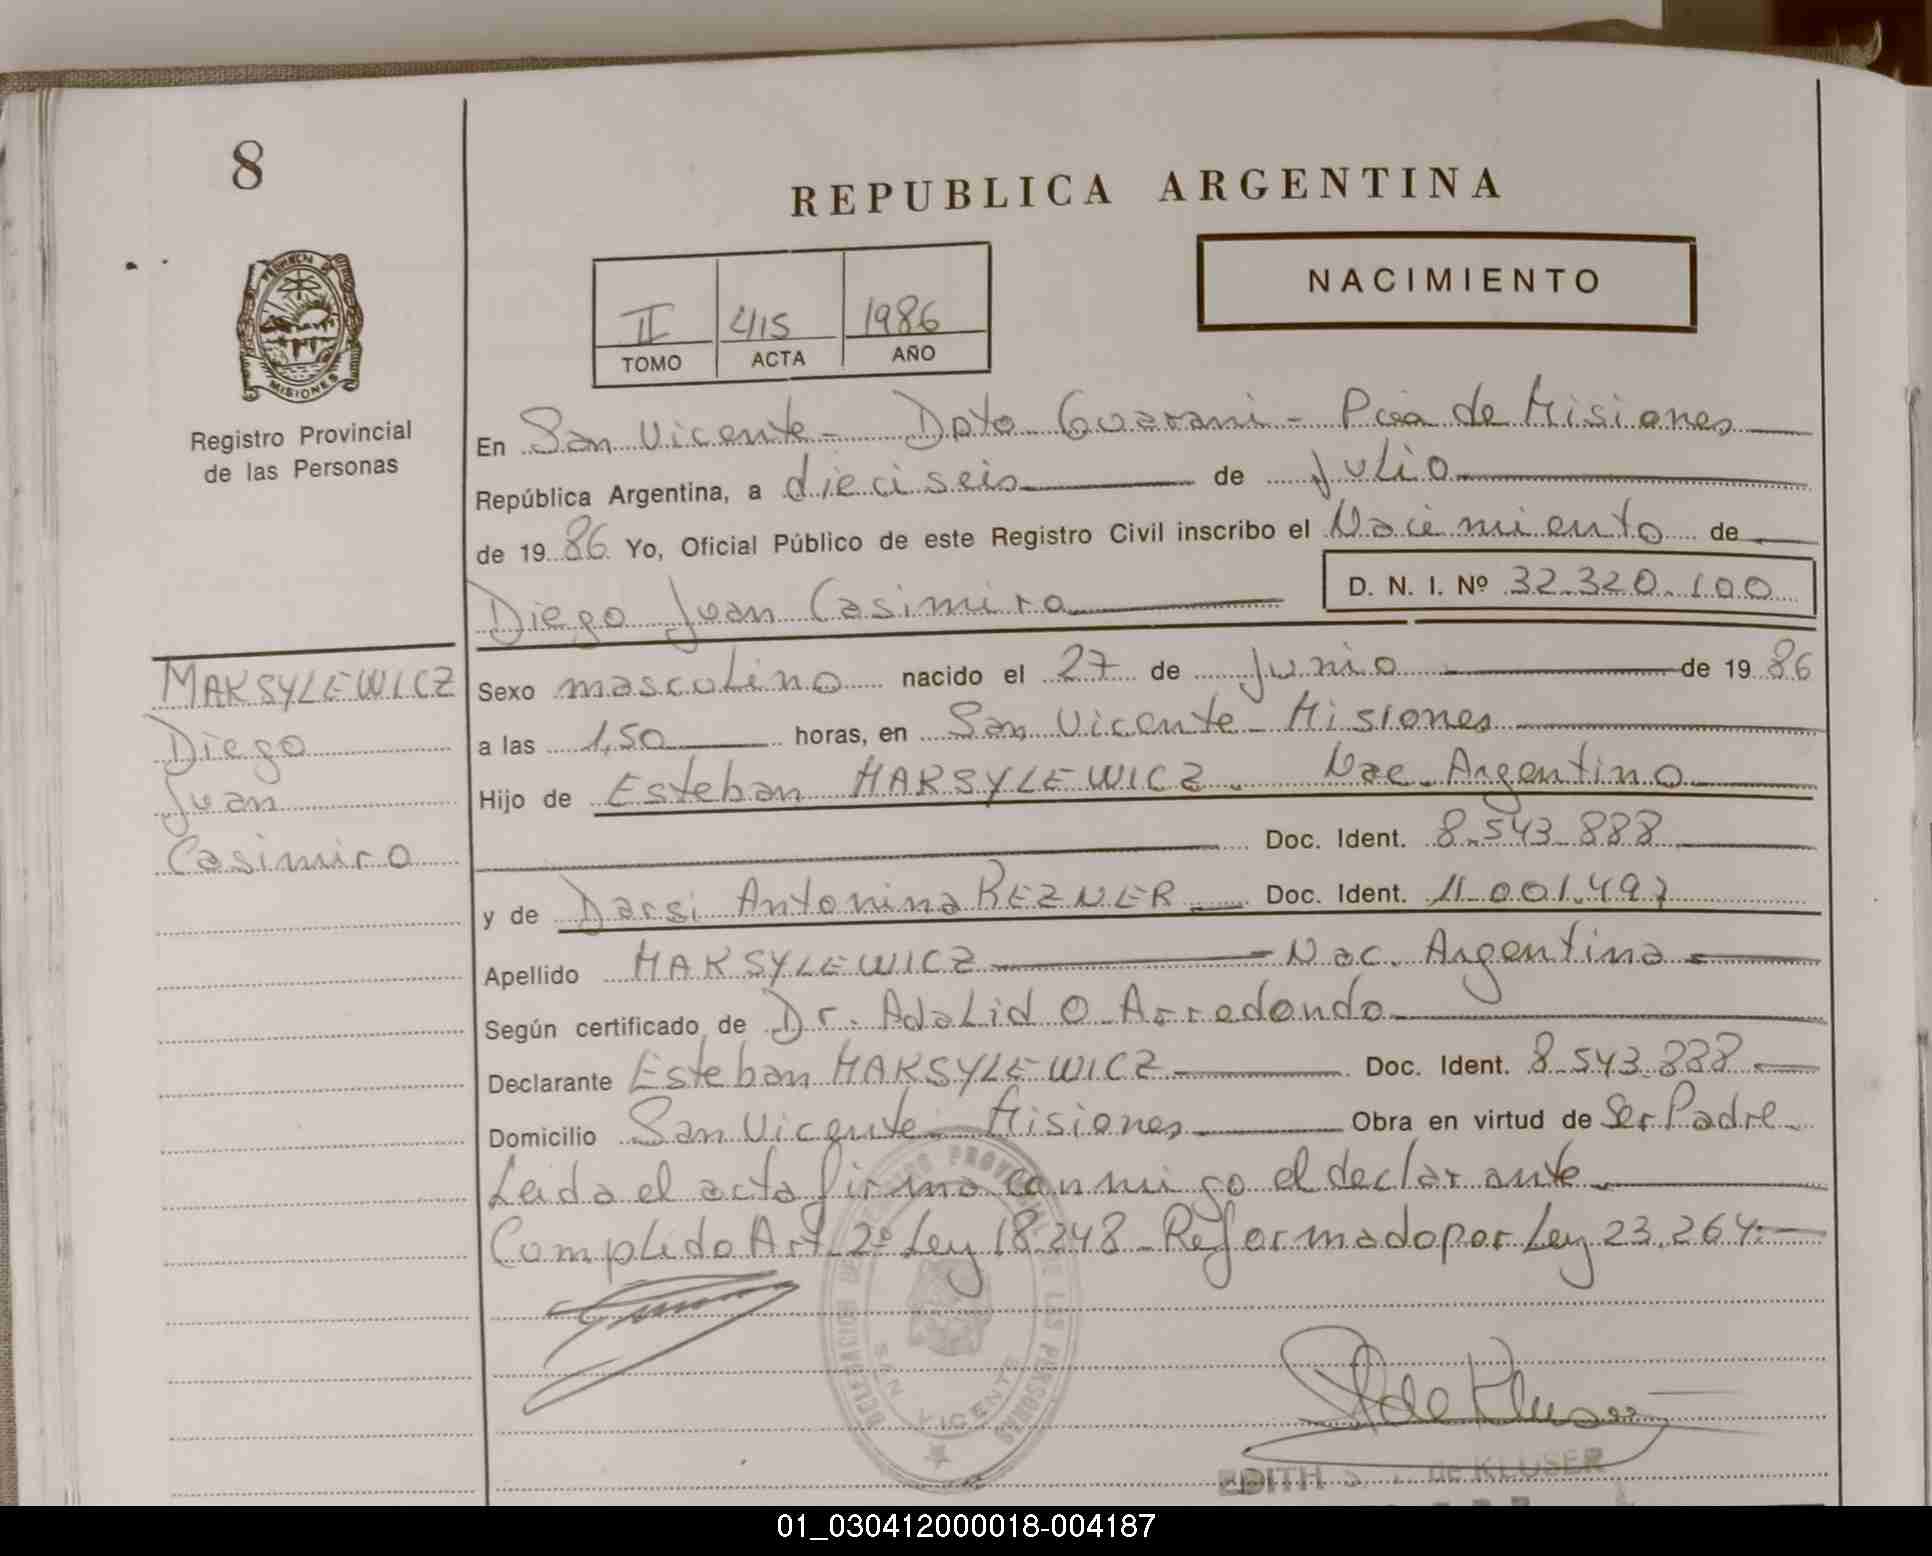 8
REPUBLICA ARGENTINA
NACIMIENTO
II 415 1986
TOMO ACTA AÑO
PROVINCIA DE
MISIONES
Registro Provincial
de las Personas
En San Vicente - Dpto Guarani - Pcia de Misiones
República Argentina, a dieciseis de Julio
de 1986 Yo, Oficial Público de este Registro Civil inscribo el Nacimiento de
Diego Juan Casimiro D. N. I. Nº 32.320.100
MAKSYLEWICZ
Diego
Juan
Casimiro
Sexo masculino nacido el 27 de Junio de 1986
a las 1,50 horas, en San Vicente - Misiones
Hijo de Esteban MAKSYLEWICZ - Nac. Argentino
Doc. Ident. 8.543.888
y de Darsi Antonina REZNER Doc. Ident. 11.001.497
Apellido MAKSYLEWICZ - Nac. Argentina
Según certificado de Dr. Adalid O. Arredondo
Declarante Esteban MAKSYLEWICZ Doc. Ident. 8.543.888
Domicilio San Vicente Misiones Obra en virtud de Ser Padre
Leida el acta firma conmigo el declarante
Complido Art. 2º Ley 18.248 - Reformado por Ley 23.264.-
DELEGACION DE REGISTRO PROVINCIAL DE LAS PERSONAS
SAN VICENTE
de Kluser
EDITH S. de KLUSER
01_030412000018-004187